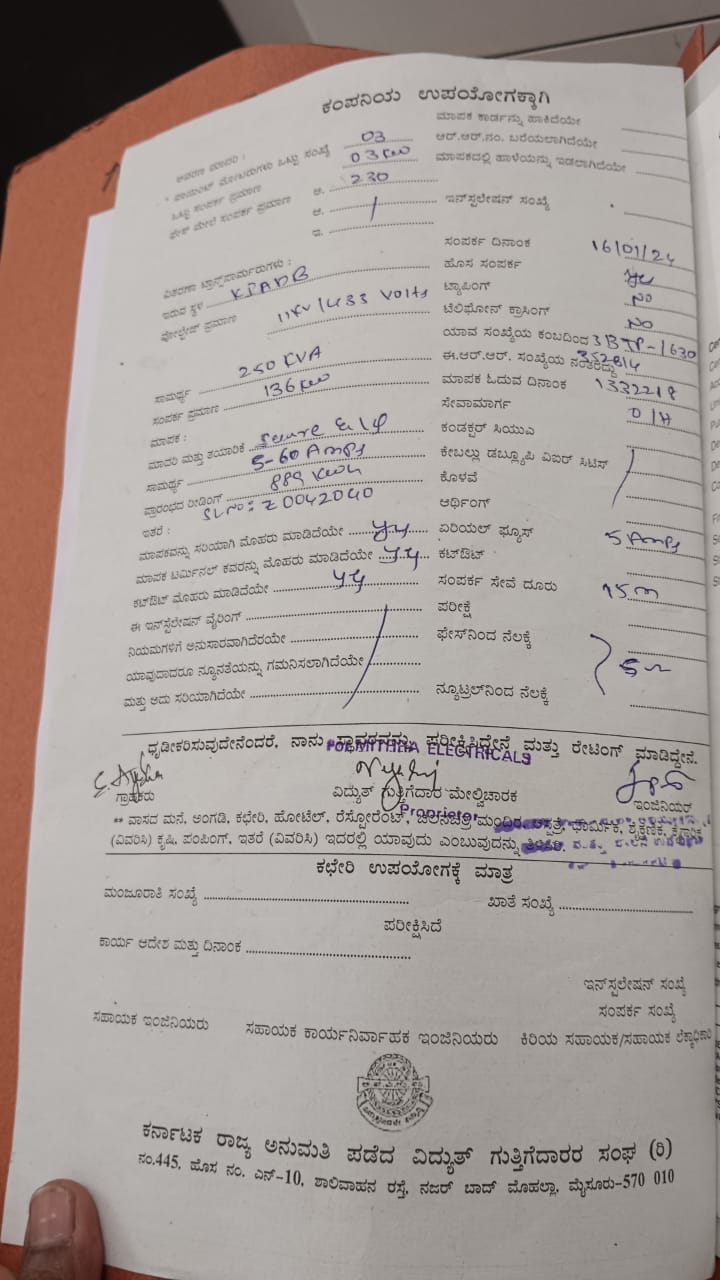 ಕಂಪನಿಯ ಉಪಯೋಗಕ್ಕಾಗಿ
ಆವರಣ ಮಾದರಿ :
* ಪಾಯಿಂಟ್ ಮೋಟಾರುಗಳು ಒಟ್ಟು ಸಂಖ್ಯೆ 03
ಒಟ್ಟು ಸಂಪರ್ಕ ಪ್ರಮಾಣ 03 KW
ಫೇಸ್ ಮೇಲೆ ಸಂಪರ್ಕ ಪ್ರಮಾಣ ಆ. 230
ಆ.
ಇ.
ವಿತರಣಾ ಟ್ರಾನ್ಸ್‌ಫಾರ್ಮರುಗಳು :
ಇರುವ ಸ್ಥಳ KPADB
ವೋಲ್ಟೇಜ್ ಪ್ರಮಾಣ 11KV/433 Volts
ಸಾಮರ್ಥ್ಯ 250 KVA
ಸಂಪರ್ಕ ಪ್ರಮಾಣ 136 KW
ಮಾಪಕ :
ಮಾದರಿ ಮತ್ತು ತಯಾರಿಕೆ Secure
ಸಾಮರ್ಥ್ಯ 5-60 Amps
ಪ್ರಾರಂಭದ ರೀಡಿಂಗ್ 889 KWH
SL No: Z0042040
ಇತರೆ :
ಮಾಪಕವನ್ನು ಸರಿಯಾಗಿ ಮೊಹರು ಮಾಡಿದೆಯೇ
ಮಾಪಕ ಟರ್ಮಿನಲ್ ಕವರನ್ನು ಮೊಹರು ಮಾಡಿದೆಯೇ
ಕಟ್‌ಔಟ್ ಮೊಹರು ಮಾಡಿದೆಯೇ
ಈ ಇನ್‌ಸ್ಟಲೇಷನ್ ವೈರಿಂಗ್
ನಿಯಮಗಳಿಗೆ ಅನುಸಾರವಾಗಿದೆರಯೇ
ಯಾವುದಾದರೂ ನ್ಯೂನತೆಯನ್ನು ಗಮನಿಸಲಾಗಿದೆಯೇ
ಮತ್ತು ಅದು ಸರಿಯಾಗಿದೆಯೇ
ಮಾಪಕ ಕಾರ್ಡನ್ನು ಹಾಕಿದೆಯೇ
ಆರ್.ಆರ್.ನಂ. ಬರೆಯಲಾಗಿದೆಯೇ
ಮಾಪಕದಲ್ಲಿ ಹಾಳೆಯನ್ನು ಇಡಲಾಗಿದೆಯೇ
ಇನ್‌ಸ್ಟಲೇಷನ್ ಸಂಖ್ಯೆ
ಸಂಪರ್ಕ ದಿನಾಂಕ 16/01/24
ಹೊಸ ಸಂಪರ್ಕ
ಟ್ಯಾಪಿಂಗ್ NO
ಟೆಲಿಫೋನ್ ಕ್ರಾಸಿಂಗ್ NO
ಯಾವ ಸಂಖ್ಯೆಯ ಕಂಬದಿಂದ 3BTP-1630
ಈ.ಆರ್.ಆರ್. ಸಂಖ್ಯೆಯ ನಂತರದ್ದು 352814
ಮಾಪಕ ಓದುವ ದಿನಾಂಕ 1332218
ಸೇವಾಮಾರ್ಗ O/H
ಕಂಡಕ್ಟರ್ ಸಿಯುಎ
ಕೇಬಲ್ಲು ಡಬ್ಲ್ಯೂಪಿ ವಿಐರ್ ಸಿಟಿಸ್
ಕೊಳವೆ
ಆರ್ಥಿಂಗ್
ಏರಿಯಲ್ ಫ್ಯೂಸ್ 5 Amps
ಕಟ್‌ಔಟ್
ಸಂಪರ್ಕ ಸೇವೆ ದೂರು 15m
ಪರೀಕ್ಷೆ
ಫೇಸ್‌ನಿಂದ ನೆಲಕ್ಕೆ
ನ್ಯೂಟ್ರಲ್‌ನಿಂದ ನೆಲಕ್ಕೆ
ಧೃಡೀಕರಿಸುವುದೇನೆಂದರೆ, ನಾನು ಸ್ಥಾವರವನ್ನು ಪರೀಕ್ಷಿಸಿದ್ದೇನೆ ಮತ್ತು ರೇಟಿಂಗ್ ಮಾಡಿದ್ದೇನೆ.
For MITHRA ELECTRICALS
ಗ್ರಾಹಕರು ವಿದ್ಯುತ್ ಗುತ್ತಿಗೆದಾರ ಮೇಲ್ವಿಚಾರಕ ಇಂಜಿನಿಯರ್
Proprietor
** ವಾಸದ ಮನೆ, ಅಂಗಡಿ, ಕಛೇರಿ, ಹೋಟೆಲ್, ರೆಸ್ಟೋರೆಂಟ್, ಚಲನಚಿತ್ರ ಮಂದಿರ, ಆಸ್ಪತ್ರೆ, ಧಾರ್ಮಿಕ, ಶೈಕ್ಷಣಿಕ, ಕೈಗಾರಿಕ
(ವಿವರಿಸಿ) ಕೃಷಿ, ಪಂಪಿಂಗ್, ಇತರೆ (ವಿವರಿಸಿ) ಇದರಲ್ಲಿ ಯಾವುದು ಎಂಬುವುದನ್ನು ತಿಳಿಸಿ.
ಕಛೇರಿ ಉಪಯೋಗಕ್ಕೆ ಮಾತ್ರ
ಮಂಜೂರಾತಿ ಸಂಖ್ಯೆ ಖಾತೆ ಸಂಖ್ಯೆ
ಪರೀಕ್ಷಿಸಿದೆ
ಕಾರ್ಯ ಆದೇಶ ಮತ್ತು ದಿನಾಂಕ
ಇನ್‌ಸ್ಟಲೇಷನ್ ಸಂಖ್ಯೆ
ಸಂಪರ್ಕ ಸಂಖ್ಯೆ
ಸಹಾಯಕ ಇಂಜಿನಿಯರು ಸಹಾಯಕ ಕಾರ್ಯನಿರ್ವಾಹಕ ಇಂಜಿನಿಯರು ಕಿರಿಯ ಸಹಾಯಕ/ಸಹಾಯಕ ಲೆಕ್ಕಾಧಿಕಾರಿ
ಕರ್ನಾಟಕ ರಾಜ್ಯ ಅನುಮತಿ ಪಡೆದ ವಿದ್ಯುತ್ ಗುತ್ತಿಗೆದಾರರ ಸಂಘ (ರಿ)
ನಂ.445, ಹೊಸ ನಂ. ಎನ್-10, ಶಾಲಿವಾಹನ ರಸ್ತೆ, ನಜರ್ ಬಾದ್ ಮೊಹಲ್ಲಾ, ಮೈಸೂರು-570 010